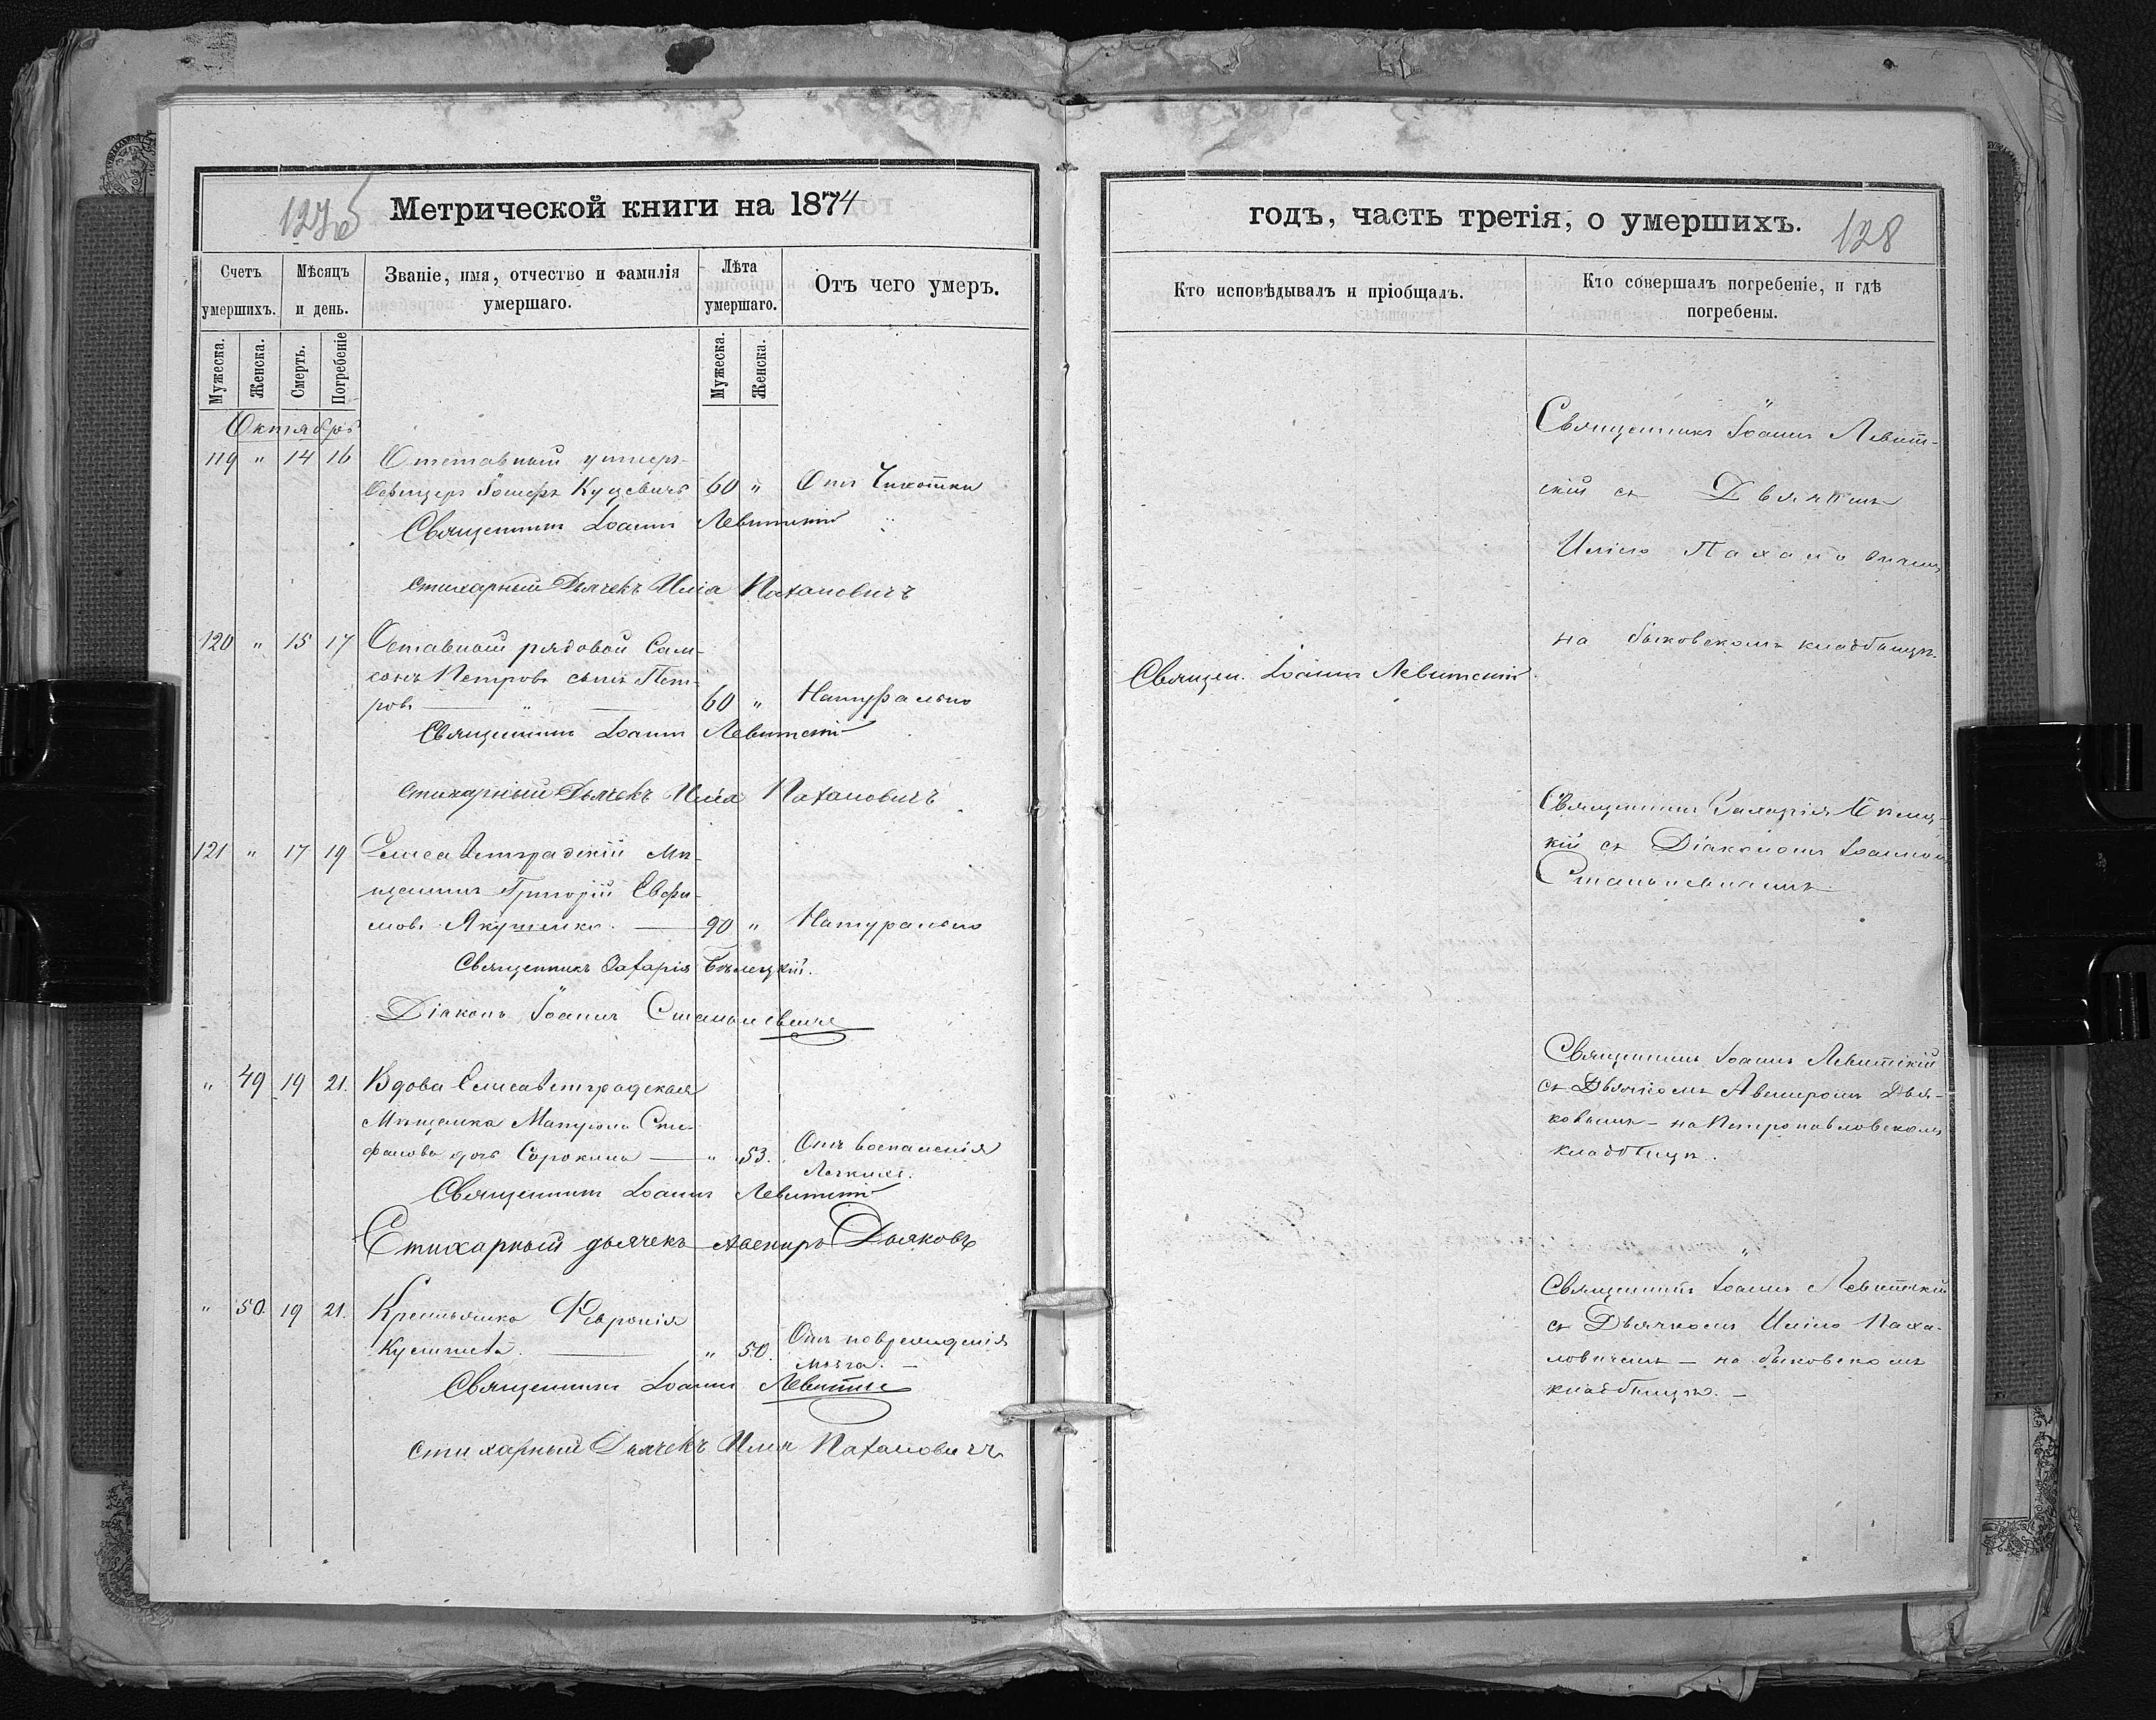 127б
Метрической книги на 1874
Счетъ умершихъ.
Мѣсяцъ и день.
Званіе, имя, отчество и фамилія умершаго.
Лѣта умершаго.
Отъ чего умеръ.
Мужеска.
Женска.
Смерть.
Погребеніе
Мужеска.
Женска.
Октябрь
119 " 14 16 Отставный унтеръ-
Офицеръ Іосифъ Куцевичъ 60 " Отъ Чихотки
Священникъ Іоаннъ Левитскій
Стихарный Дьячекъ Илія Пахаловичъ
120 " 15 17 Оставной рядовой Сам-
сонъ Петровъ сынъ Пет-
ровъ — " — 60 " Натурально
Священникъ Іоаннъ Левитскій
Стихарный Дьячекъ Илія Пахаловичъ
121 " 17 19 Елисаветградскій Мѣ-
щанинъ Григорій Евфи-
мовъ Якушенко. — 90 " Натурально
Священникъ Захарія Бѣлецкій.
Діаконъ Іоаннъ Станиславскій
" 49 19 21. Вдова Елисаветградская
Мѣщанка Матрона Сте-
фанова дочь Сорокина — " 53. Отъ воспаленія
Легкихъ.
Священникъ Іоаннъ Левитскій
Стихарный дьячекъ Авениръ Дьяковъ
" 50. 19 21. Крестьянка Февронія
" 50. Отъ поврежденія
мозга. —
Священникъ Іоаннъ Левитскій
Стихарный Дьячекъ Илія Пахаловичъ
годъ, часть третія, о умершихъ.
128
Кто исповѣдывалъ и пріобщалъ.
Кто совершалъ погребеніе, и гдѣ погребены.
Священникъ Іоаннъ Левит-
скій съ Дьячкомъ
Иліею Пахаловичемъ
на быковскомъ кладбищѣ.
Священ. Іоаннъ Левитскій.
Священникъ Захарія Бѣлец-
кій съ Діакономъ Іоанномъ
Священникъ Іоаннъ Левитскій
съ Дьячкомъ Авениромъ Дья-
ковымъ — на Петропавловскомъ
кладбищѣ.
Священникъ Іоаннъ Левитскій
съ Дьячкомъ Иліею Паха-
ловичемъ — на быковскомъ
кладбищѣ. —